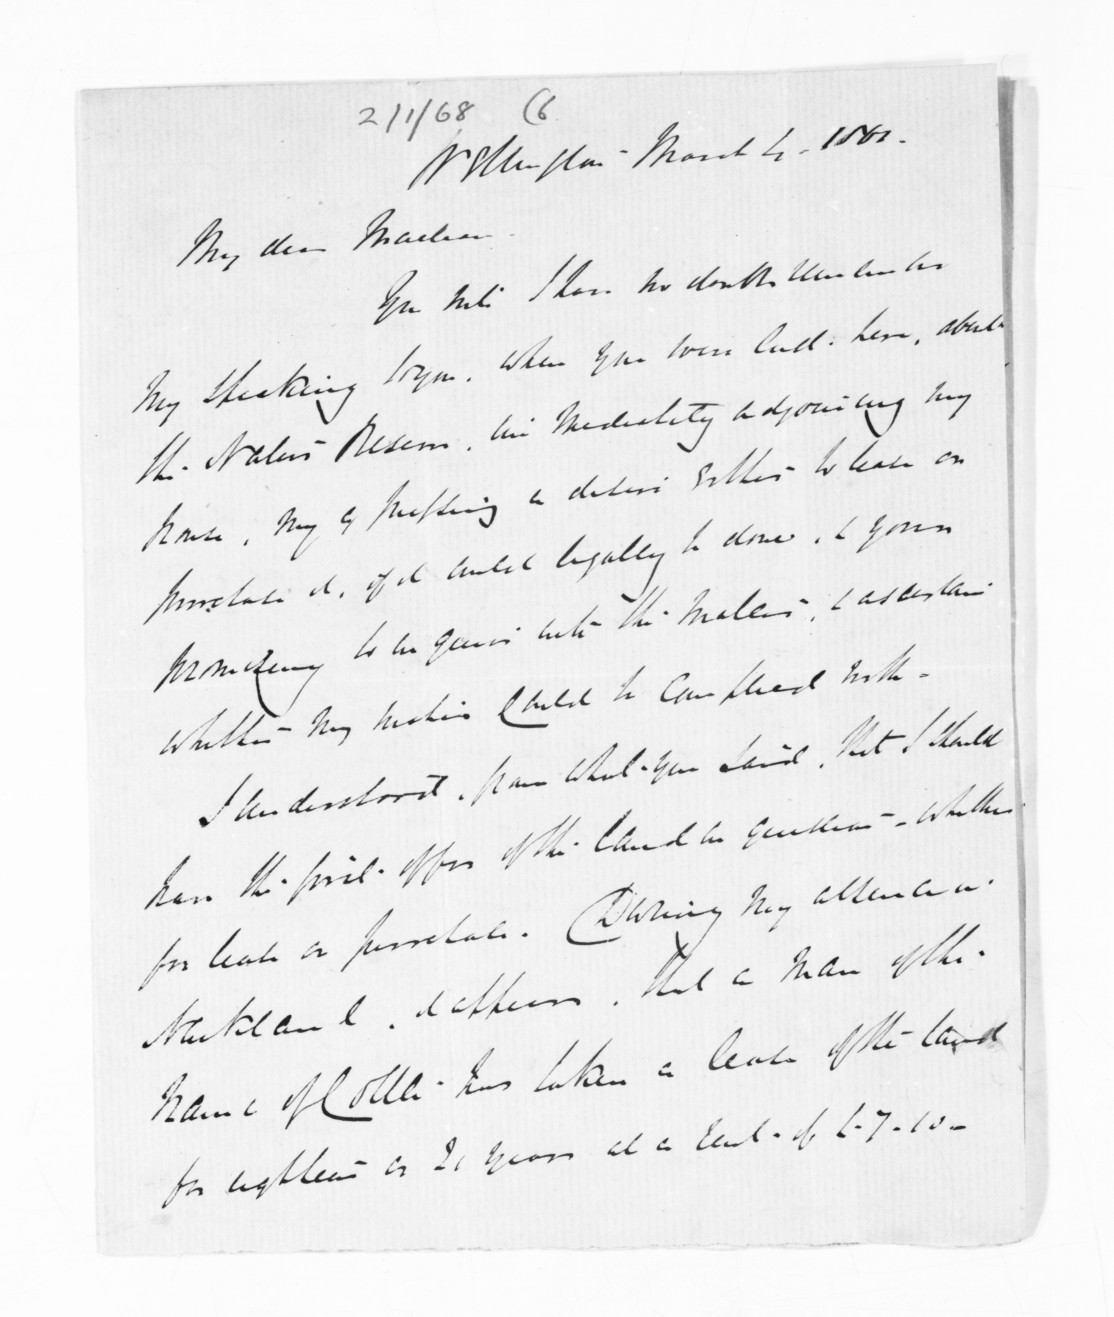 2/1/68 (6
Wellington March 4. 1861.
My dear Maclean.
You will I have no doubt remember
my speaking to you, when you were last here, about
the Native Reserve, immediately adjoining my
house, my expressing a desire either to lease or
purchase it, if it could legally be done, & your
promising to enquire into the matter, & ascertain
whether my wishes could be complied with -
I understood, from what you said, that I should
have the first offer of the land in question - whether
for lease or purchase. During my absence in
Auckland, it appears, that a man of the
name of has taken a lease of the land
for eighteen or 21 years at a rent of £7-10-